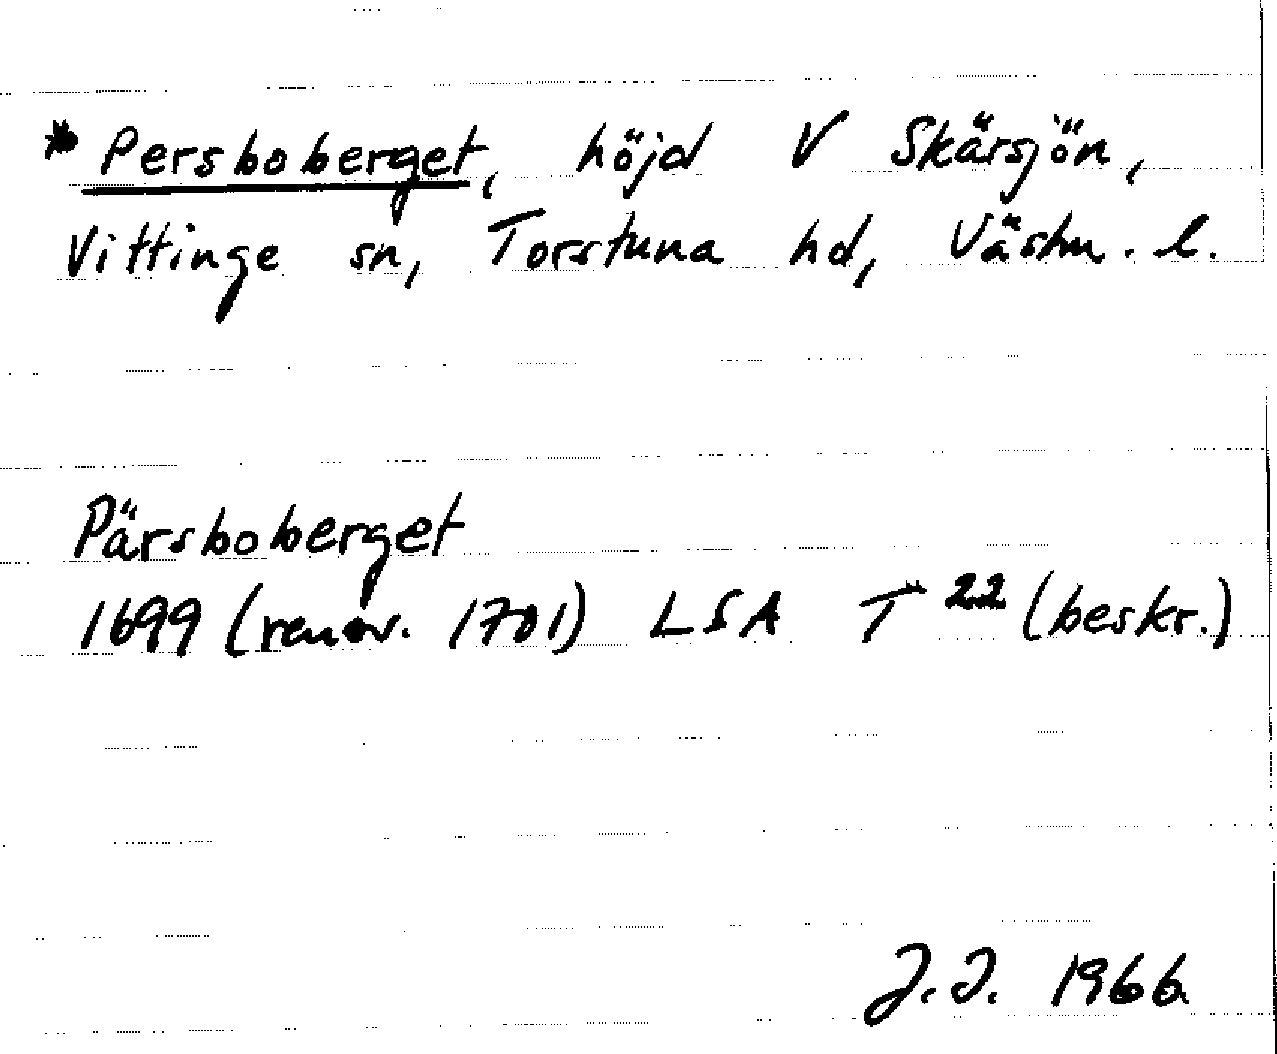 * Persboberget, höjd V Skärsjön,
Vittinge sn, Torstuna hd, Västm. l.
Pärsboberget
1699 (renov. 1701) LSA T 22 (beskr.)
J.J. 1966